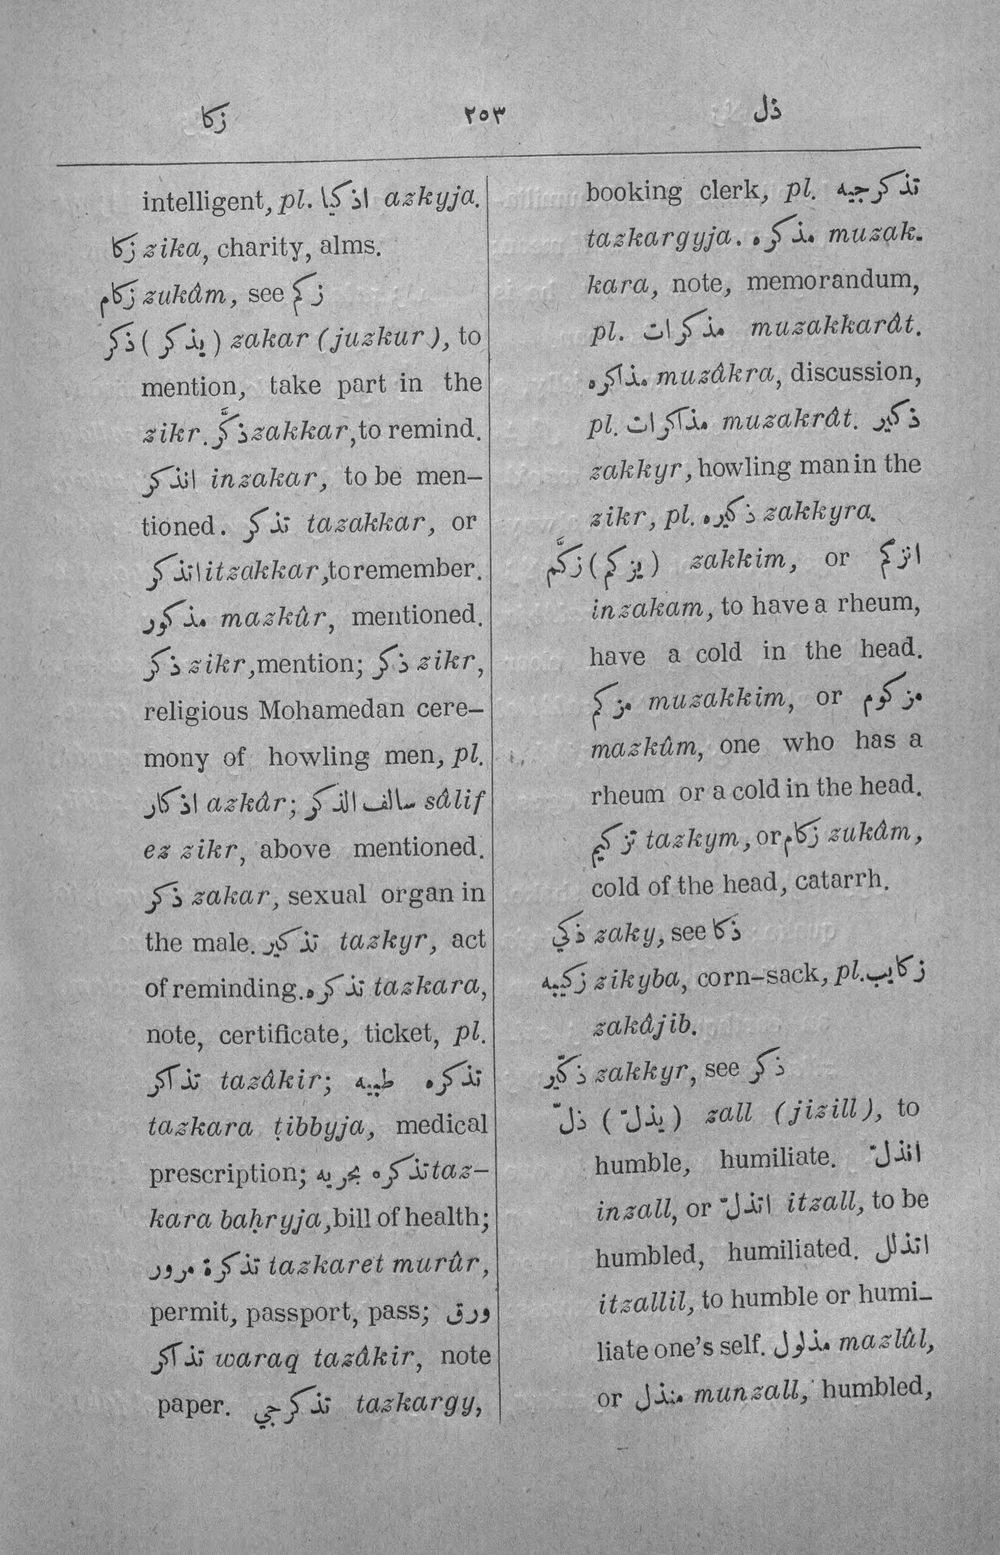 زكا ٢٥٣ ذل
intelligent, pl. اذكيا azkyja.
زكا zika, charity, alms.
زكام zukâm, see زكم
ذكر (يذكر) zakar (juzkur), to
mention, take part in the
zikr. ذكَّر zakkar, to remind.
انذكر inzakar, to be men-
tioned. تذكر tazakkar, or
اتذكر itzakkar, to remember.
مذكور mazkûr, mentioned.
ذكر zikr, mention; ذكر zikr,
religious Mohamedan cere-
mony of howling men, pl.
اذكار azkâr; سالف الذكر sâlif
ez zikr, above mentioned.
ذكر zakar, sexual organ in
the male. تذكير tazkyr, act
of reminding. تذكره tazkara,
note, certificate, ticket, pl.
تذاكر tazâkir; تذكره طبيه
tazkara ṭibbyja, medical
prescription; تذكره بحريه taz-
kara baḥryja, bill of health;
تذكرة مرور tazkaret murûr,
permit, passport, pass; ورق
تذاكر waraq tazâkir, note
paper. تذكرجي tazkargy,
booking clerk, pl. تذكرجيه
tazkargyja. مذكره muzak-
kara, note, memorandum,
pl. مذكرات muzakkarât.
مذاكره muzâkra, discussion,
pl. مذاكرات muzakrât. ذكير
zakkyr, howling man in the
zikr, pl. ذكيره zakkyra.
زكَّم (يزكم) zakkim, or انزكم
inzakam, to have a rheum,
have a cold in the head.
مزكم muzakkim, or مزكوم
mazkûm, one who has a
rheum or a cold in the head.
تزكيم tazkym, or زكام zukâm,
cold of the head, catarrh.
ذكي zaky, see ذكا
زكيبه zikyba, corn-sack, pl. زكايب
zakâjib.
ذكّير zakkyr, see ذكر
ذلّ (يذلّ) zall (jizill), to
humble, humiliate. انذلّ
inzall, or اتذلّ itzall, to be
humbled, humiliated. اتذلل
itzallil, to humble or humi-
liate one's self. مذلول mazlûl,
or منذل munzall, humbled,